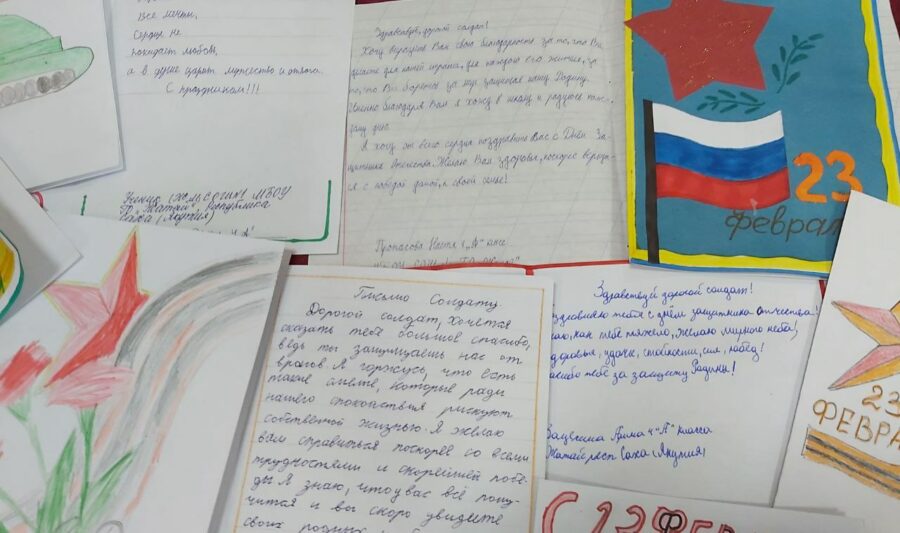 Все мечты,
Сердце не
покидает любовь,
а в душе царят мужество и отвага.
С праздником!!!
МБОУ
Республика
Саха (Якутия)
Здравствуй, дорогой солдат!
Хочу выразить Вам свою благодарность за то, что Вы
делаете для нашей страны, для каждого его жителя, за
то, что Вы боретесь за мир, защищая нашу Родину.
Именно благодаря Вам я хожу в школу и радуюсь каж-
дому дню.
Я хочу от всего сердца поздравить Вас с Днём За-
щитника Отечества. Желаю Вам здоровья, поскорее верну
с победой домой, к своей семье!
Настя 1 "А" класс
23
феврал
Письмо Солдату.
Дорогой солдат, хочется
сказать тебе большое спасибо,
ведь ты защищаешь нас от
врагов. Я горжусь, что есть
такие смелые, которые ради
нашего спокойствия рискуют
собственной жизнью. Я желаю
вам справиться поскорее со всеми
трудностями и скорейшей побе-
ды. Я знаю, что у вас всё полу-
чится и вы скоро увидите
своих родных
Здравствуй дорогой солдат!
здравляю тебя с днём защитника отечества!
как тебе тяжело, желаю мирного неба,
доровья, удачи, стойкости, сил, побед!
асибо тебе за защиту Родины!
4 "А" класса
Жатай респ Саха (Якутия)
23
ФЕВРА
С 23 ФЕВ